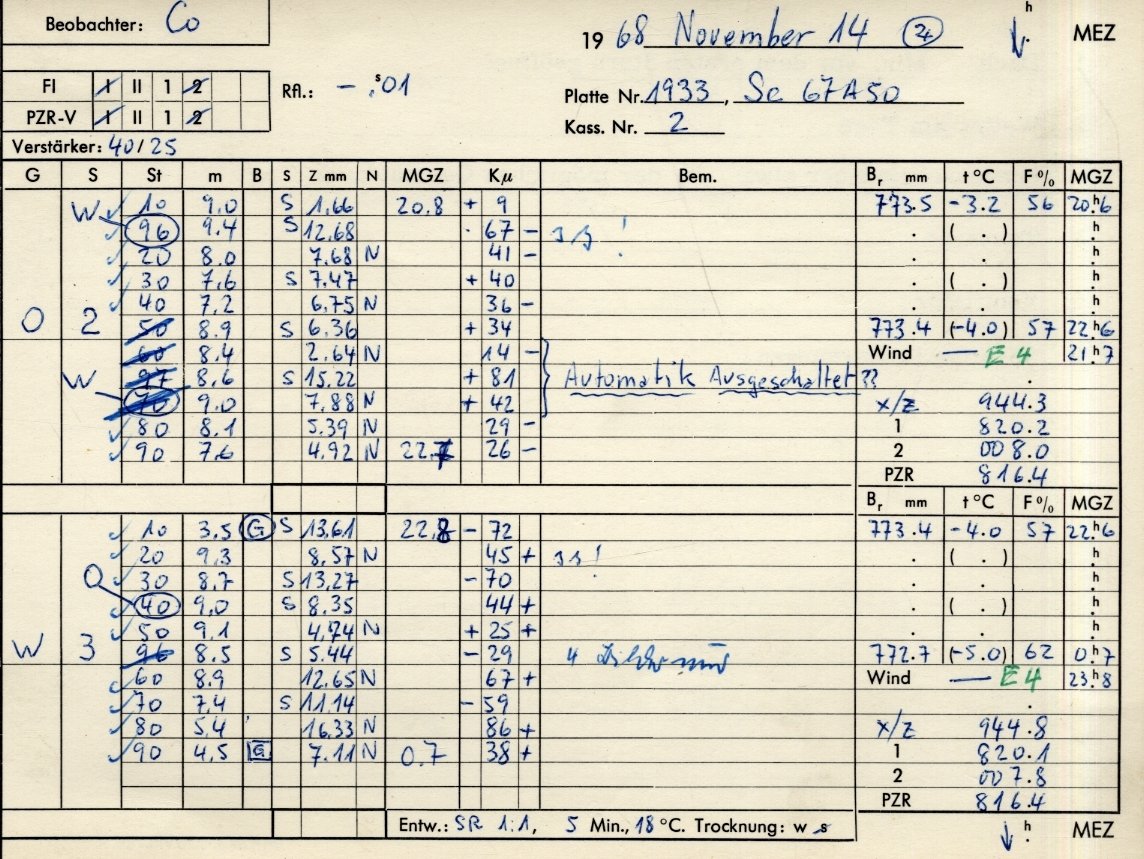 Beobachter: Co
19 68 November 14 (24) h MEZ
FI I II 1 2
PZR-V I II 1 2
Rfl.: - ,s01
Platte Nr. 1933, Se 67A50
Kass. Nr. 2
Verstärker: 40/25
G S St m B S Z mm N MGZ Kμ Bem. Br mm t°C F% MGZ
W 10 9,0 S 1,66 20,8 + 9 773.5 -3.2 56 20h6
96 9.4 S 12,68 67 - ! . ( . ) h
20 8.0 7,68 N 41 - . . h
30 7,6 S 7,47 + 40 . ( . ) h
40 7,2 6,75 N 36 - . . h
O 2 50 8.9 S 6,36 + 34 773.4 (-4.0) 57 22h6
60 8.4 2,64 N 14 - Wind — E 4 21h7
W 97 8,6 S 15,22 + 81 Automatik Ausgeschaltet ?? .
70 9,0 7,88 N + 42 x/z 944.3
80 8,1 5,39 N 29 - 1 820.2
90 7,6 4,92 N 22,7 26 - 2 008.0
PZR 816.4
Br mm t°C F% MGZ
10 3,5 G S 13,61 22,8 - 72 773.4 -4.0 57 22h6
20 9,3 8,57 N 45 + ! . ( . ) h
O 30 8,7 S 13,27 - 70 . . h
40 9,0 S 8,35 44 + . ( . ) h
50 9,1 4,74 N + 25 + . . h
W 3 96 8,5 S 5,44 - 29 4 772.7 (-5.0) 62 0h7
60 8,9 12,65 N 67 + Wind — E 4 23h8
70 7,4 S 11,14 - 59 .
80 5,4 16,33 N 86 + x/z 944.8
90 4,5 G 7.11 N 0.7 38 + 1 820.1
2 007.8
PZR 816.4
Entw.: SR 1:1, 5 Min., 18 °C. Trocknung: w s h MEZ